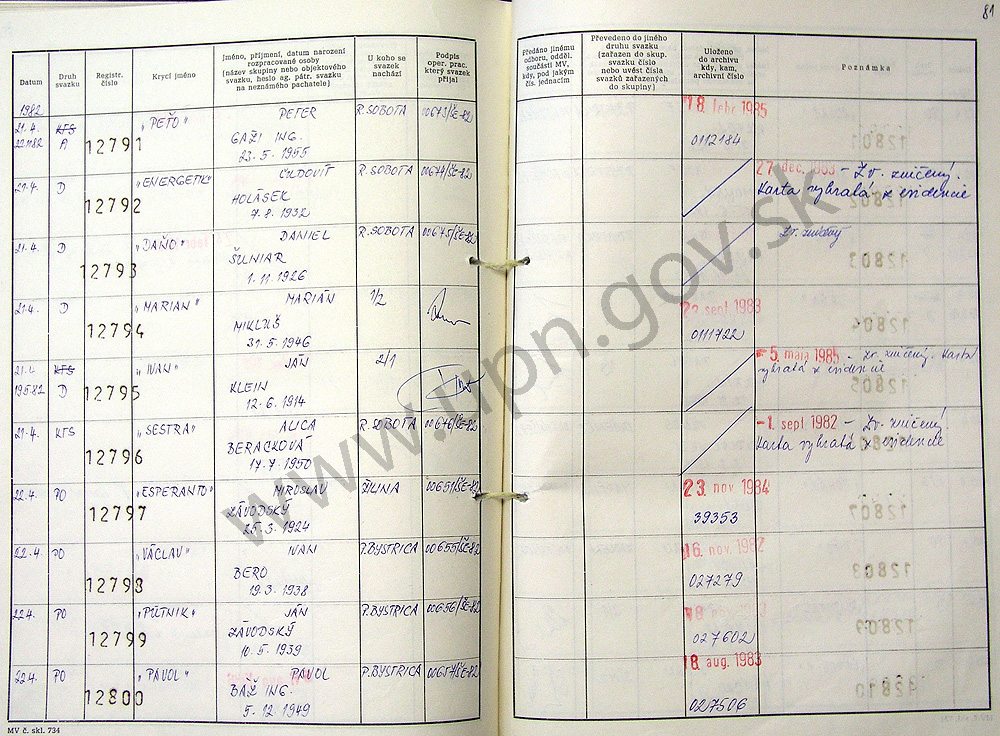 81
Datum
Druh svazku
Registr. číslo
Krycí jméno
Jméno, příjmení, datum narození
rozpracované osoby
(název skupiny nebo objektového
svazku, heslo ag. pátr. svazku
na neznámého pachatele)
U koho se
svazek
nachází
Podpis
oper. prac.
který svazek
přijal
Předáno jinému
odboru, odděl.
součásti MV,
kdy, pod jakým
čís. jednacím
Převedeno do jiného
druhu svazku
(zařazen do skup.
svazku číslo
nebo uvést čísla
svazků zařazených
do skupiny)
Uloženo
do archivu
kdy, kam,
archivní číslo
Poznámka
1982
21.4. KTS 12791 "PEŤO" PETER R.SOBOTA 00673/ŠE-82 18. febr 1985
A GAŽI ING. 0112184
23.5.1955
21.4. D 12792 "ENERGETIK" ĽUDOVÍT R.SOBOTA 00674/ŠE-82 27. dec. 1983 - Zv. zničený.
HOLÁSEK Karta vybratá z evidencie
7.8.1932
21.4. D 12793 "DAŇO" DANIEL R.SOBOTA 00675/ŠE-82 Zv. zničený
ŠUNIAR
1.11.1926
21.4. D 12794 "MARIAN" MARIÁN 1/2 sept 1983
MIKLUŠ 0111722
31.5.1946
21.4. KTS 12795 "IVAN" JÁN 2/1 5. maja 1985 - Zv. zničený. Karta
19.5.82 D KLEIN vybratá z evidencie
12.6.1914
21.4. KTS 12796 "SESTRA" ALICA R.SOBOTA 00676/ŠE-82 -1. sept 1982 - Zv. zničený.
BERACKOVÁ Karta vybratá z evidencie
17.7.1950
22.4. PO 12797 "ESPERANTO" MIROSLAV ŽILINA 00651/ŠE-82 23. nov 1984
ZÁVODSKÝ 39353
25.3.1924
22.4. PO 12798 "VÁCLAV" IVAN P.BYSTRICA 00655/ŠE-82 16. nov. 1982
BERO 027279
19.3.1938
22.4. PO 12799 "PÚTNIK" JÁN P.BYSTRICA 00656/ŠE-82
ZÁVODSKÝ 027602
10.5.1939
22.4. PO 12800 "PAVOL" PAVOL P.BYSTRICA 00657/ŠE-82 18. aug. 1983
BÁŽ ING. 027506
5.12.1949
MV č. skl. 734
www.upn.gov.sk